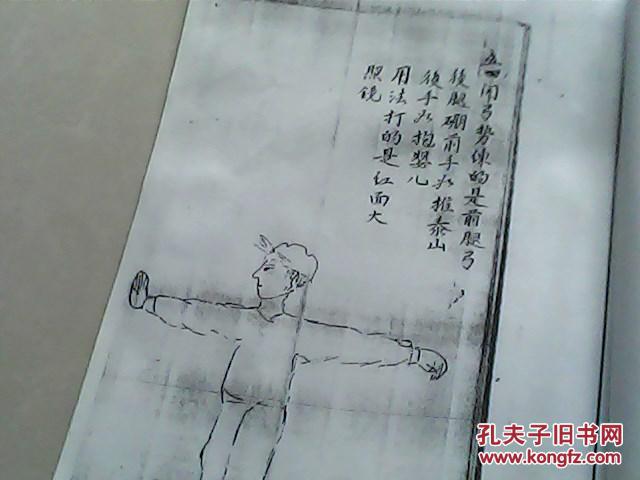 開弓势练的是前腿弓
後腿硼前手如推泰山
後手如抱婴儿
用法打的是红面大
照镜
孔夫子旧书网
www.kongfz.com